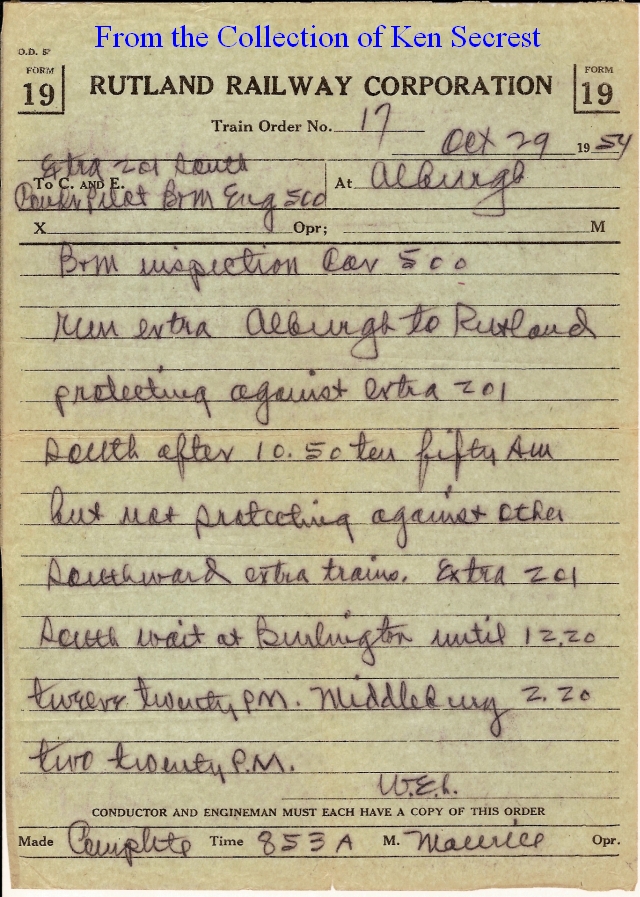 From the Collection of Ken Secrest
O.D. 5
FORM 19
RUTLAND RAILWAY CORPORATION
FORM 19
Train Order No. 17
Oct 29 1954
Extra 201 South
To C. AND E.
Pilot B+M Eng 500
At Alburgh
X Opr; M
B+M inspection Car 500
run extra Alburgh to Rutland
protecting against extra 201
South after 10.50 ten fifty Am
but not protecting against other
Southward extra trains. Extra 201
South wait at Burlington until 12.20
twelve twenty P.M. Middlebury 2.20
two twenty P.M.
CONDUCTOR AND ENGINEMAN MUST EACH HAVE A COPY OF THIS ORDER
Made Complete Time 853 A M. Maurice Opr.